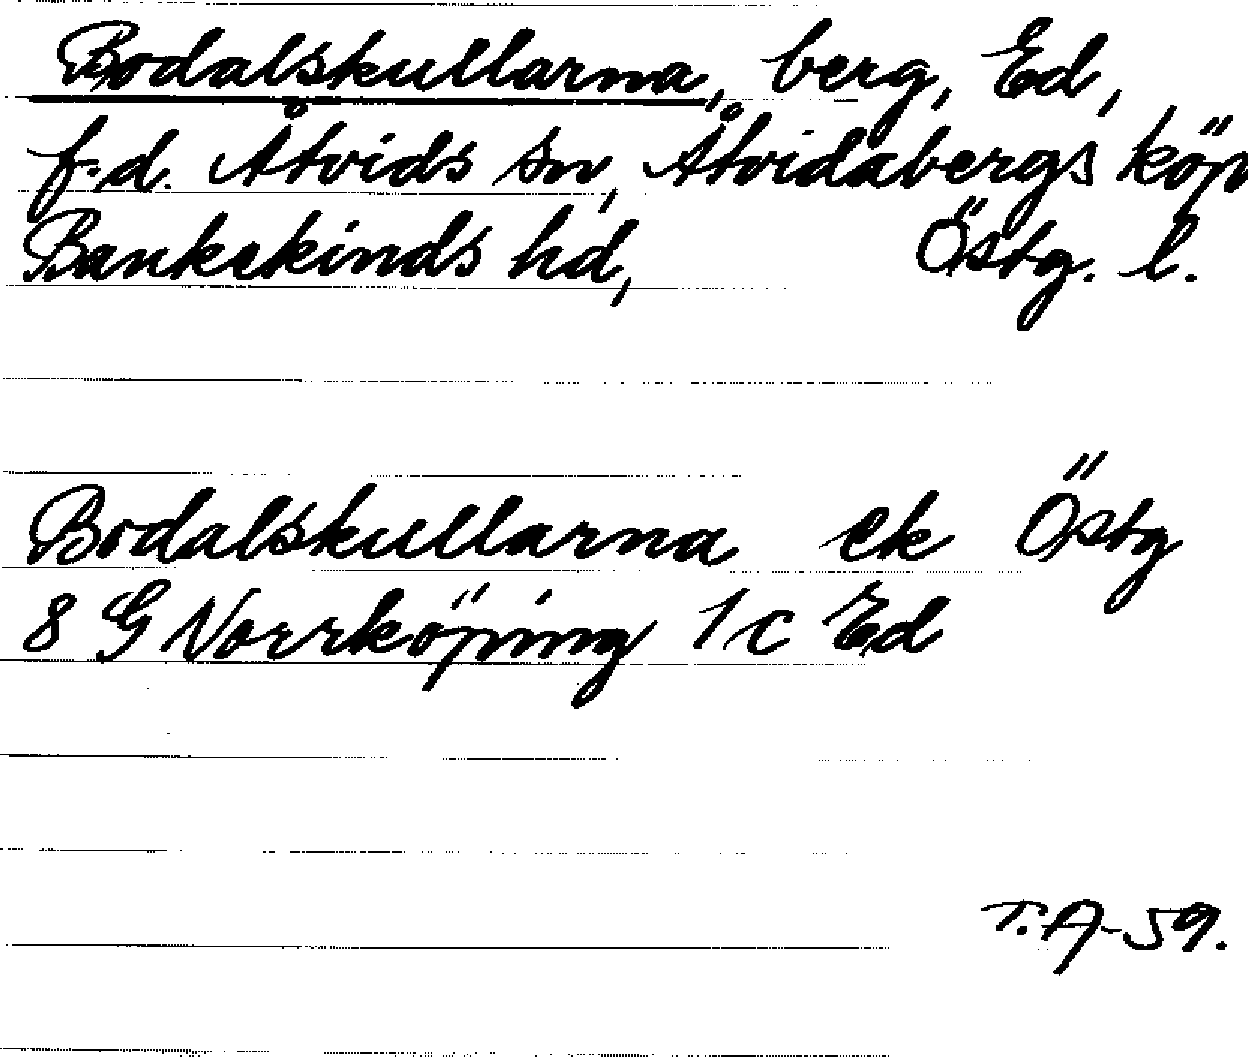 Bodalskullarna, berg, Ed,
f.d. Åtvids sn, Åtvidabergs köp
Bankekinds hd, Östg. l.
Bodalskullarna ek Östg
8 G Norrköping 1 c Ed
T.A-59.